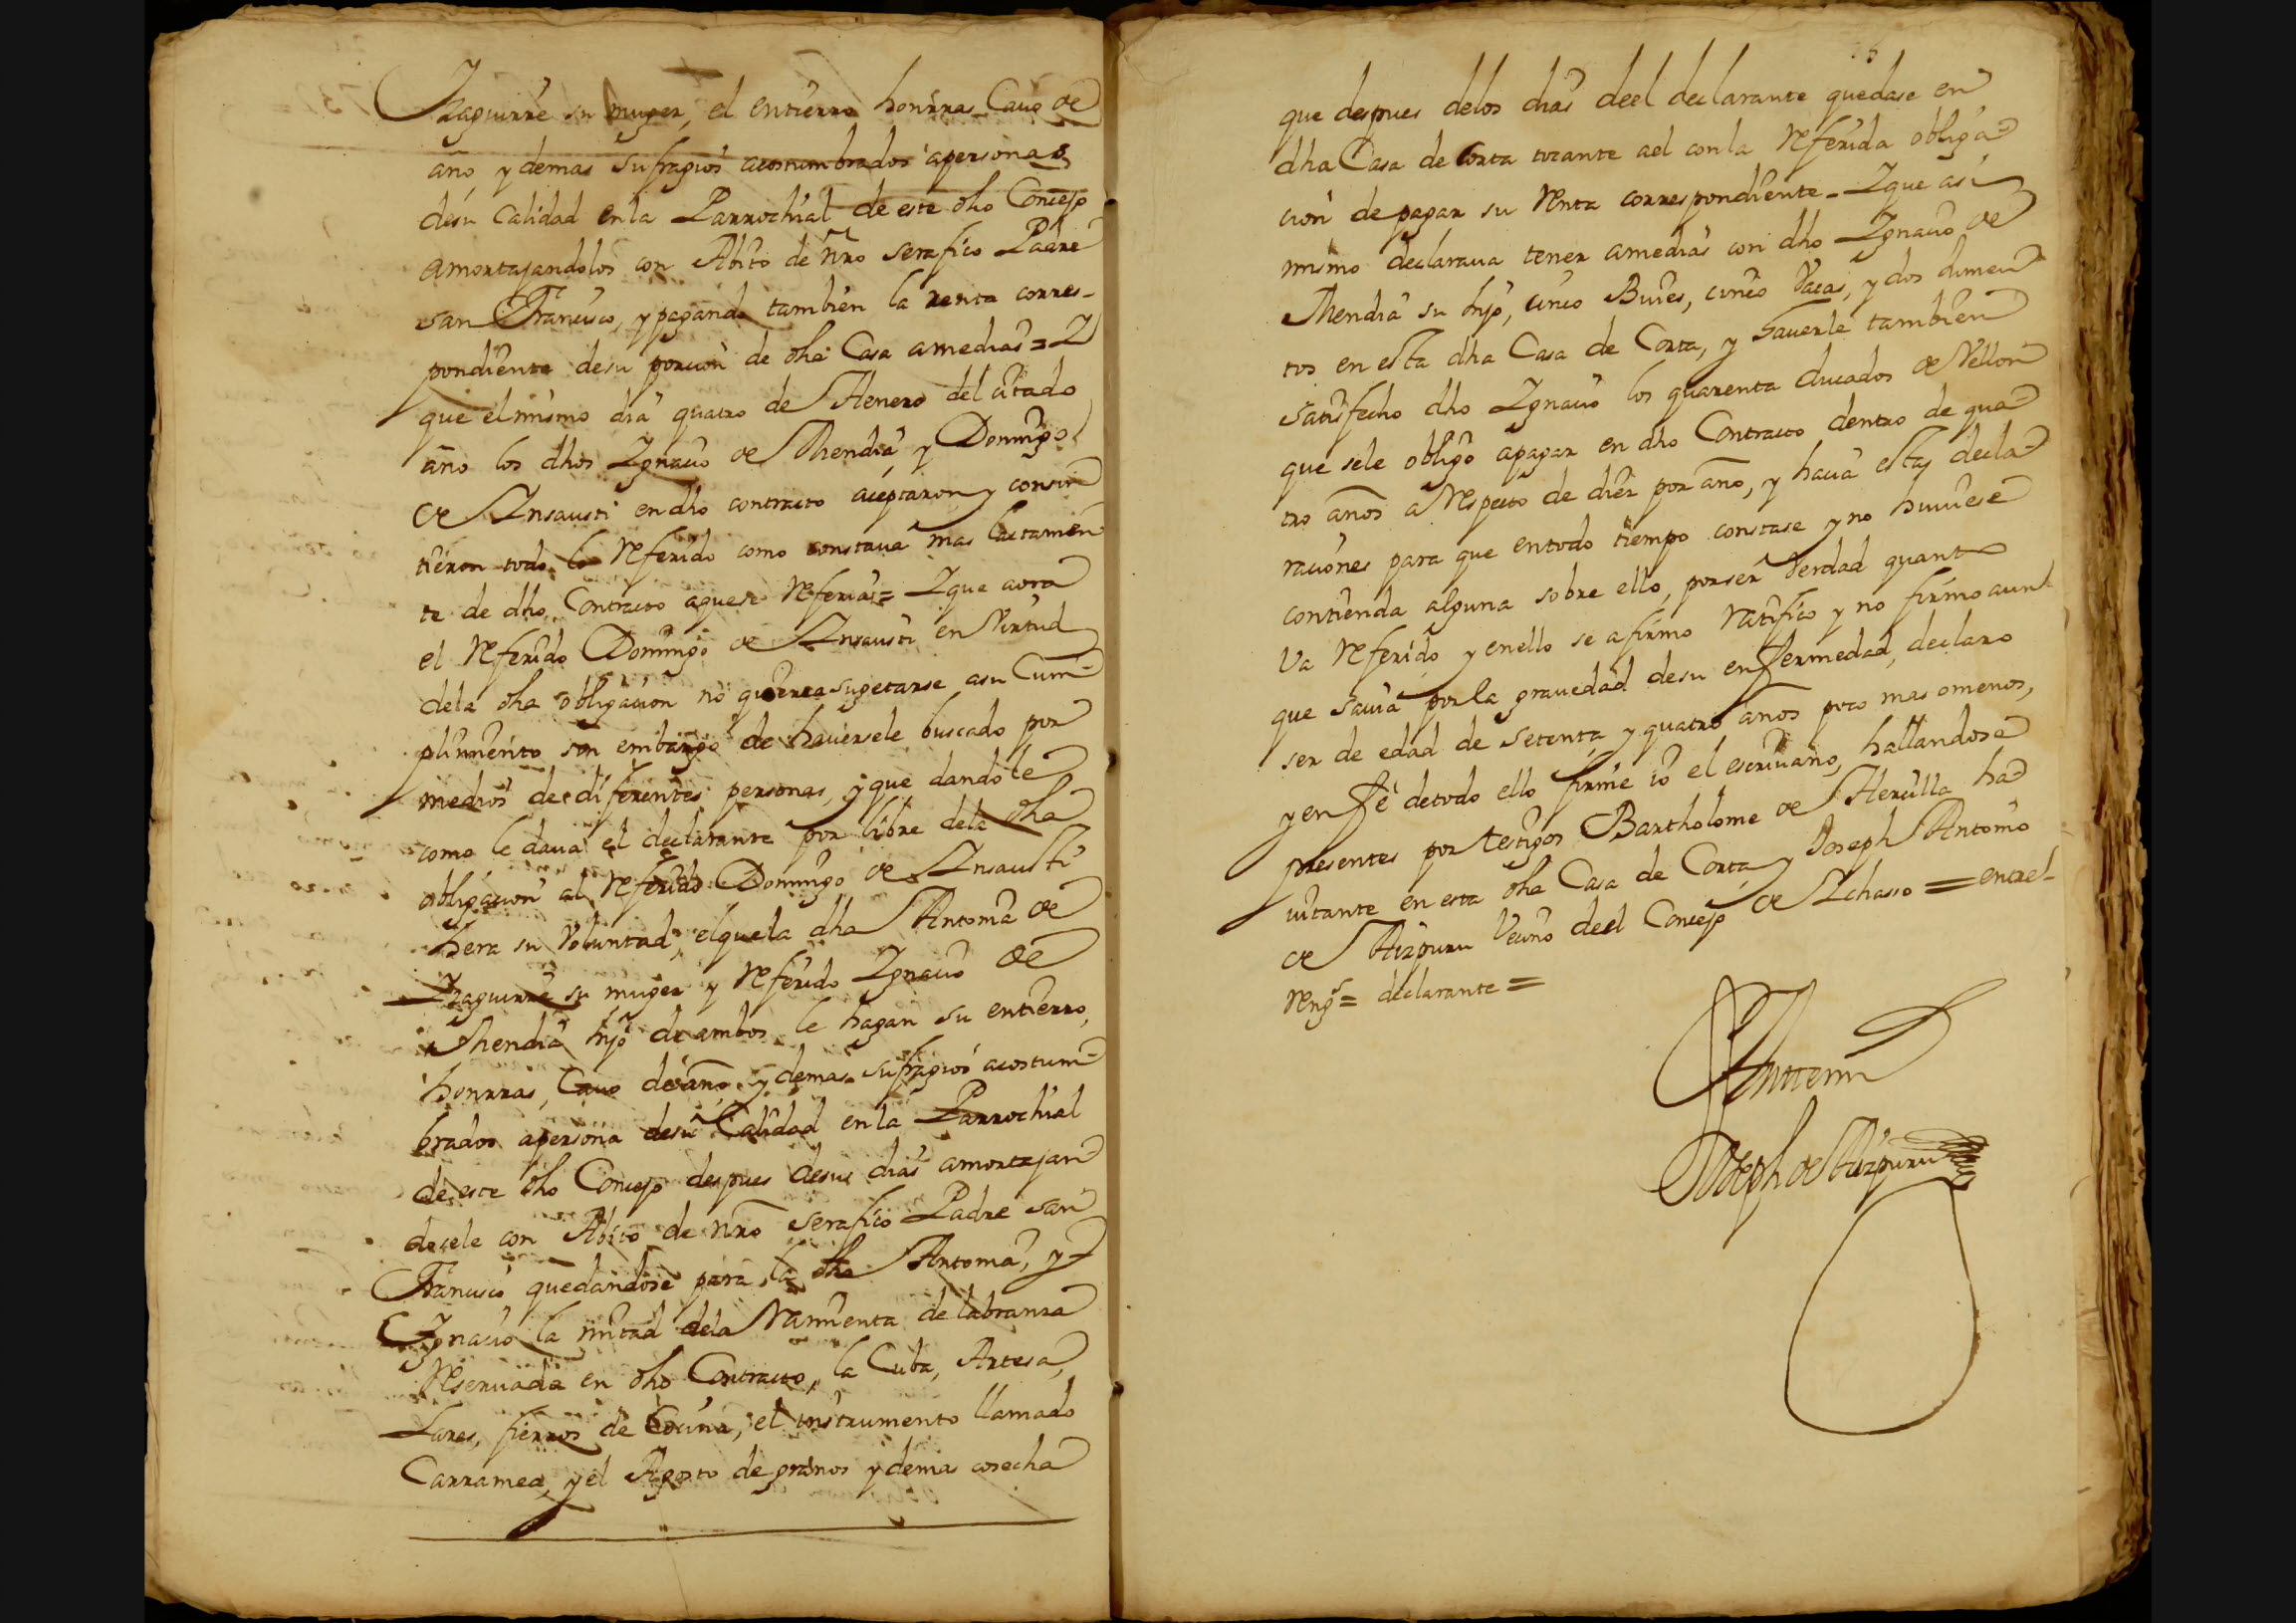 Yzaguirre su muger, el entierro honrras Cauo de
año, y demas sufragios acostumbrados apersonas
desu Calidad en la Parrochial de este dho Concejo
Amortajandolos con Abito de nro serafico Padre
san Francisco, y pagando tambien la renta corres-
pondiente desu porcion de dha Casa amedias = Y
que el mismo dia quatro de Henero del citado
año los dhos Ygnacio de Mendia, y Domingo
de Ynsausti en dho contracto aceptaron y consin
tieron todo lo Referido como constaua mas lactamen
te de dho Contracto aquese Referia = Y que aora
el Referido Domingo de Ynsausti en Virtud
dela dha obligacion no querea sugetarse asu Cum
plimiento sin embargo de hauersele buscado por
medios de diferentes personas, y que dandole
como le daua el declarante por libre dela dha
obligacion al Referido Domingo de Ynsausti
hera su Voluntad, elquela dha Antonia de
Yzaguirre su muger y Referido Ygnacio de
Mendia hijo de ambos le hagan su entierro,
honrras, Cauo de año, y demas sufragios acostum
brados apersona desu Calidad en la Parrochial
de este dho Concejo despues desus dias amortajan
dosele con Abito de nro serafico Padre san
Francisco quedandose para la dha Antonia, y
Ygnacio la mitad dela Ramienta de labranza
Reseruada en dho Contracto, la Cuba, Artesa,
Lares, fierros de Cocina, el instrumento llamado
Carramea, y el Agosto de granos y demas cosecha
que despues delos dias deel declarante quedase en
dha Casa de Corta tocante ael con la Referida obliga
cion de pagar su Renta correspondiente = Y que asi
mismo declaraua tener amedias con dho Ygnacio de
Mendia su hijo, cinco Bueies, cinco Vacas, y dos Jumen
tos en esta dha Casa de Corta, y hauerle tambien
satisfecho dho Ygnacio los quarenta ducados de Vellon
que sele obligo apagar en dho Contracto dentro de qua
tro años a Respecto de diez por año, y hacia estas decla
raciones para que entodo tiempo constase y no huuiese
contienda alguna sobre ello, por ser Verdad quanto
Va Referido y en ello se afirmo Ratifico y no firmo aun
que sauia por la grauedad desu enfermedad, declaro
ser de edad de setenta y quatro años poco mas omenos,
y en fe detodo ello firme io el escriuano, hallandose
presentes por testigos Bartholome de Herculla ha
uitante en esta dha Casa de Corta, y Joseph Antonio
de Aizpuru Vecino deel Concejo de Ychasso = entrel
Reng.s = declarante =
Ante mi
Joseph de Aizpuru